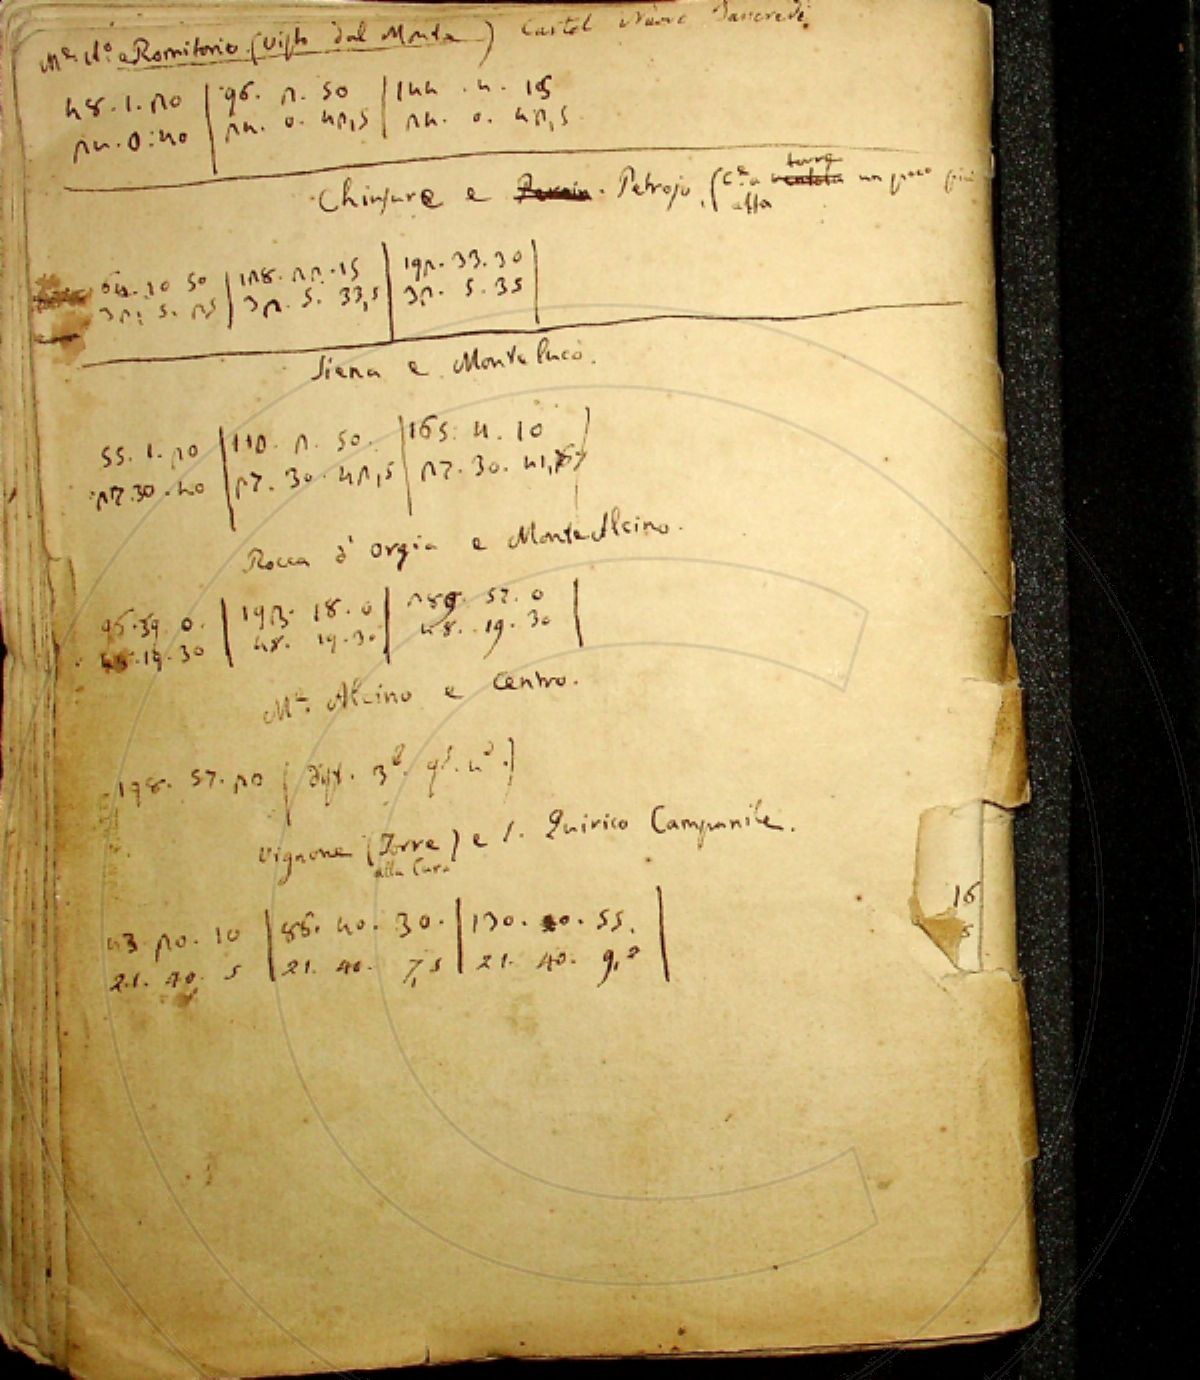 e Romitorio (visto dal Monte) Castel Nuovo Tancredi
48.1.20 | 96.2.50 | 144.4.15
24.0.40 | 24.0.42,5 | 24.0.42,5
torre
Chiusure e Petrojo. (C.a a ventola un poco più
alta
64.10 50 | 128.22.15 | 192.33.30
32. 5. 25 | 32. 5. 33,5 | 32. 5. 35
Siena e Monte luco.
55.1.20 | 110. 2. 50. | 165. 4. 10
27.30.40 | 27. 30. 42,5 | 27. 30. 41,7
Rocca d'Orgia e Monte Alcino.
96.39. 0. | 193. 18. 0 | 289. 57. 0
48.19.30 | 48. 19.30 | 48. 19. 30
M.e Alcino e Centro.
198. 57. 20
Vignone (Torre) e S. Quirico Campanile.
alla Cura
43. 20. 10 | 86. 40. 30. | 130. 0. 55.
21. 40. 5 | 21. 40. 7,5 | 21. 40. 9,2
16